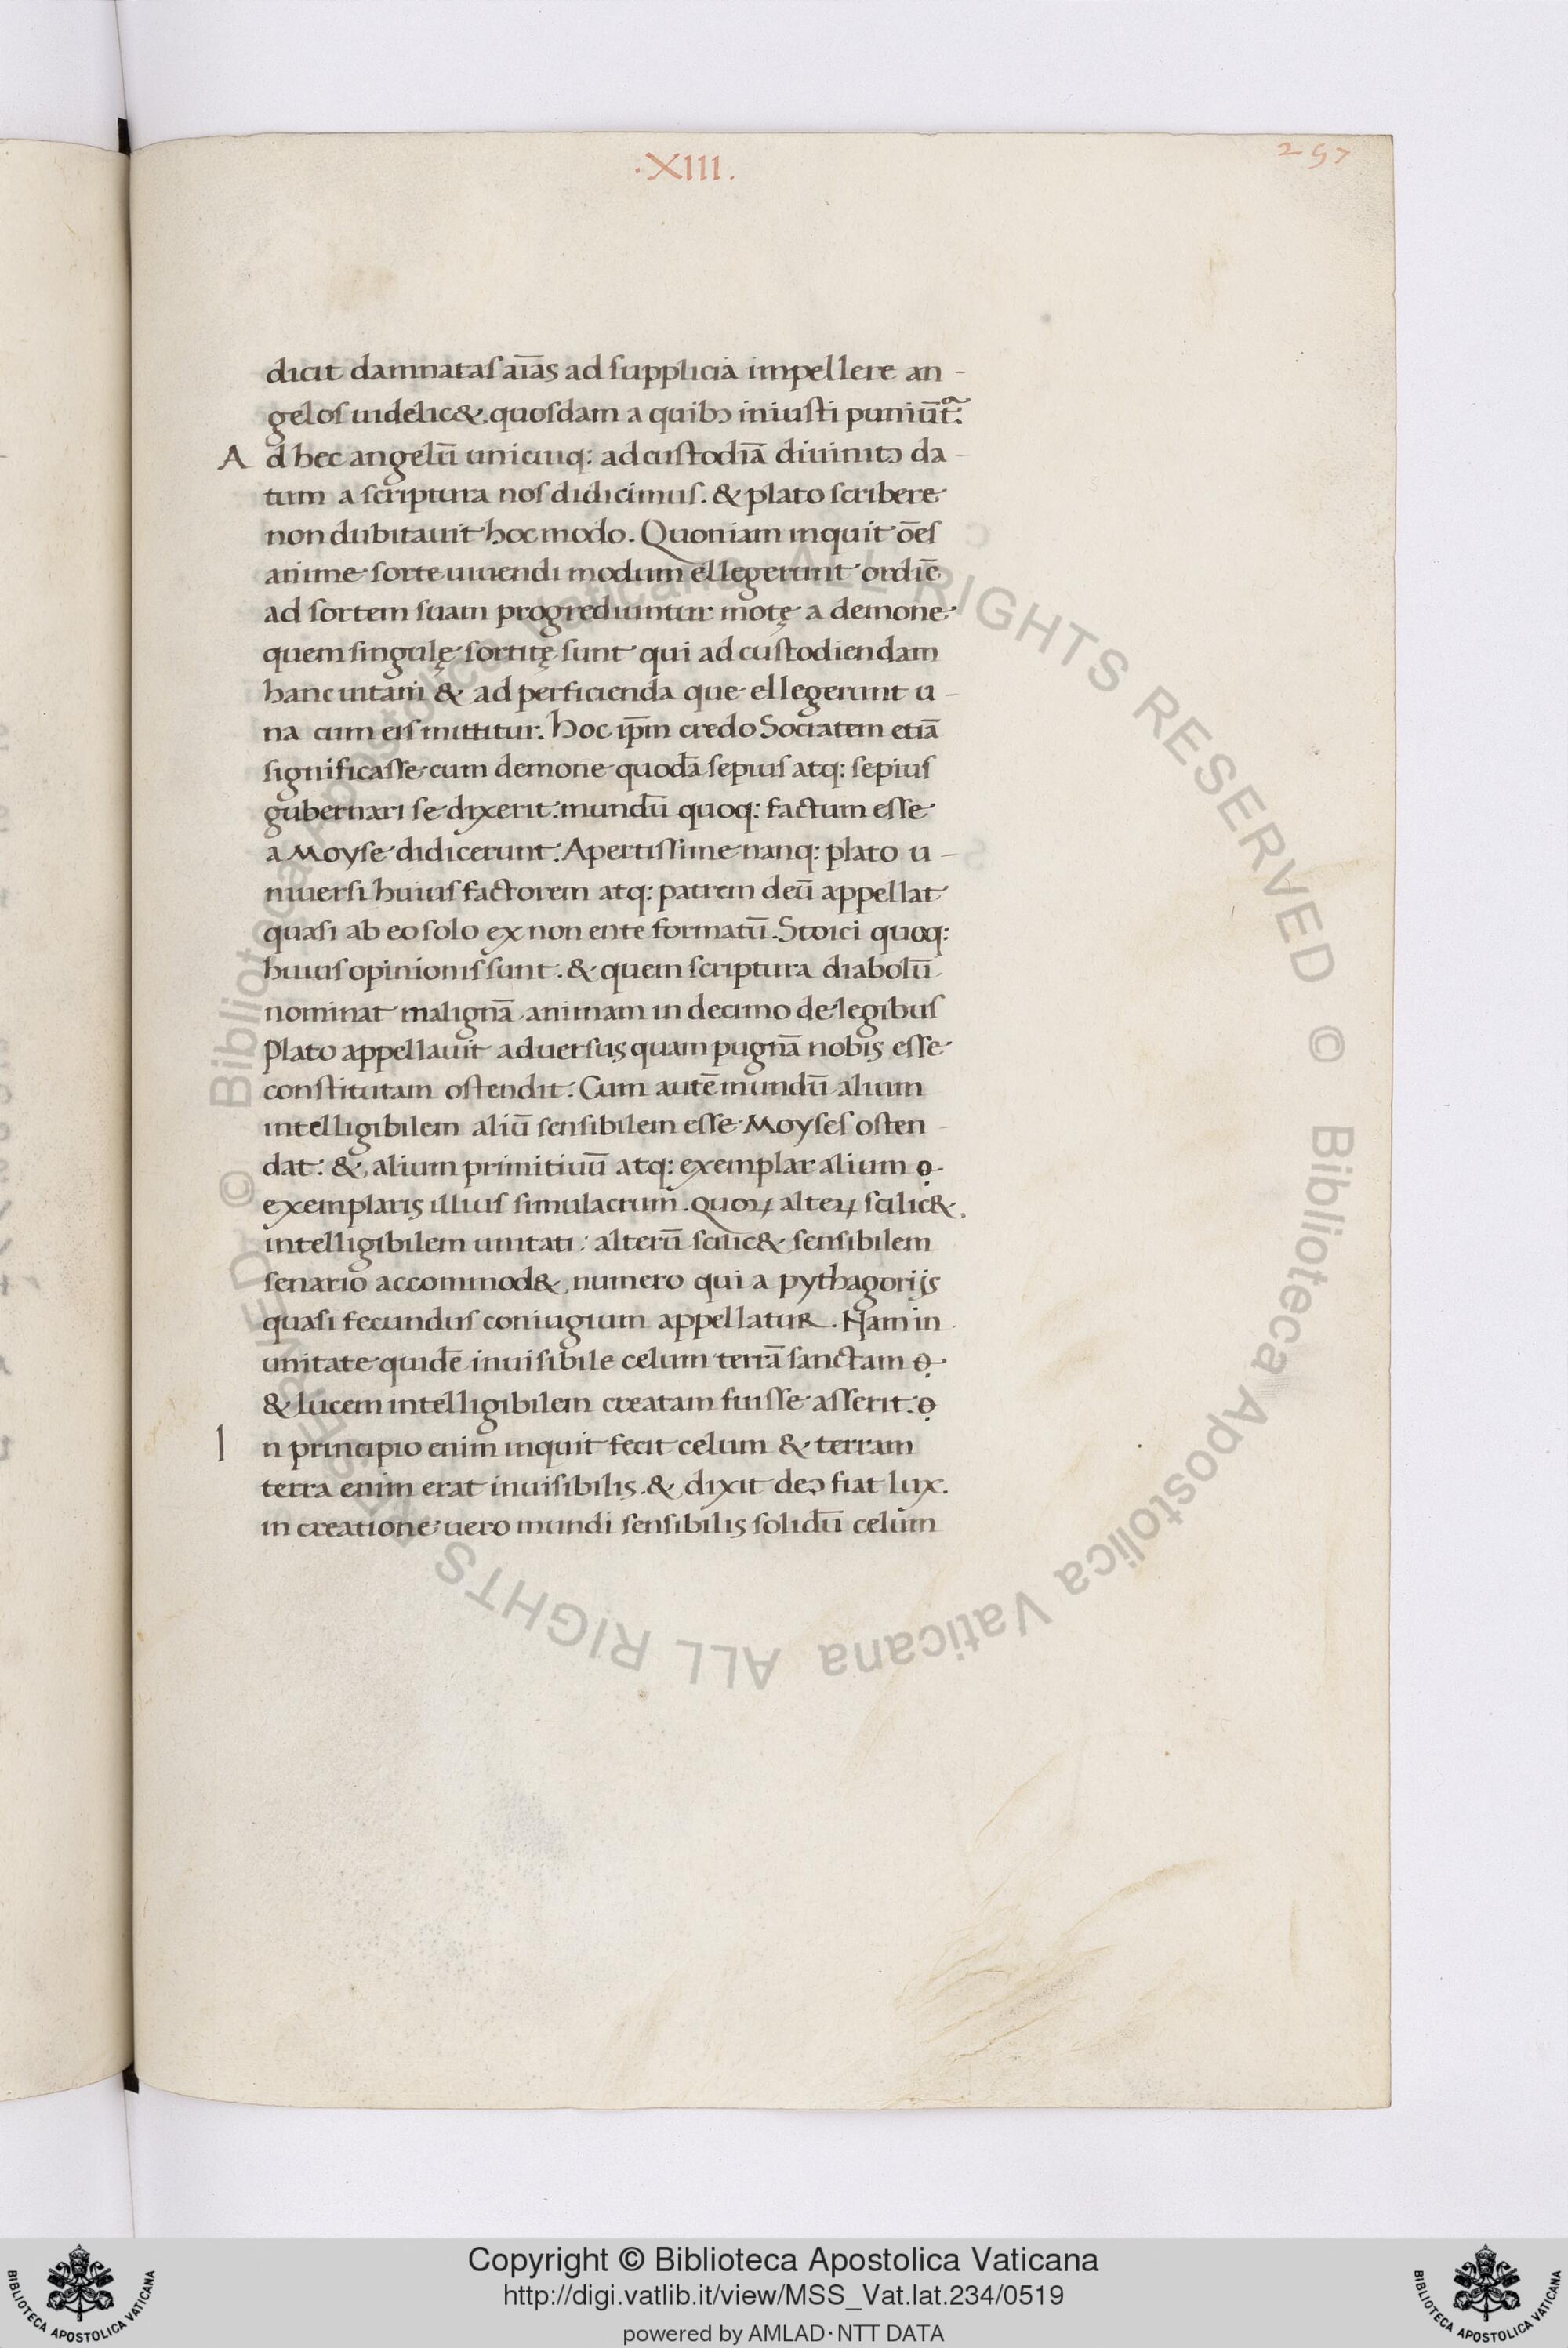 ·XIII.
257
dicit damnatas aīas ad supplicia impellere an-
gelos uidelic&. quosdam a quibꝰ iniusti puniūt᷑:
A d hec angelū unicuiq: ad custodiā diuinitꝰ da-
tum a scriptura nos didicimus. & plato scribere
non dubitauit hoc modo. Quoniam inquit ōes
anime sorte uiuendi modum ellegerunt ordiē
ad sortem suam progrediuntur motę a demone
quem singulę sortitę sunt qui ad custodiendam
hanc uitam & ad perficienda que ellegerunt u-
na cum eis mittitur. Hoc ip̄m credo Socratem etiā
significasse cum demone quodā sepius atq: sepius
gubernari se dixerit: mundū quoq: factum esse
a Moyse didicerunt: Apertissime nanq: plato u-
niuersi huius factorem atq: patrem deū appellat
quasi ab eo solo ex non ente formatū. Stoici quoq:
huius opinionis sunt. & quem scriptura diabolū
nominat malignā animam in decimo de legibus
Plato appellauit aduersus quam pugnā nobis esse
constitutam ostendit: Cum autē mundū alium
intelligibilem aliū sensibilem esse Moyses osten
dat: & alium primitiuū atq: exemplar alium
exemplaris illius simulacrum. quoꝝ alteꝝ scilic&.
intelligibilem unitati: alterū scilic& sensibilem
senario accommod& numero qui a pythagorijs
quasi fecundus coniugium appellatur. Nam in
unitate quidē inuisibile celum terrā sanctam
& lucem intelligibilem creatam fuisse asserit.
I n principio enim inquit fecit celum & terram
terra enim erat inuisibilis. & dixit deꝰ fiat lux.
in creatione uero mundi sensibilis solidū celum
© Biblioteca Apostolica Vaticana ALL RIGHTS RESERVED © Biblioteca Apostolica Vaticana ALL RIGHTS RESERVED
Copyright © Biblioteca Apostolica Vaticana
http://digi.vatlib.it/view/MSS_Vat.lat.234/0519
powered by AMLAD·NTT DATA
BIBLIOTECA APOSTOLICA VATICANA
BIBLIOTECA APOSTOLICA VATICANA